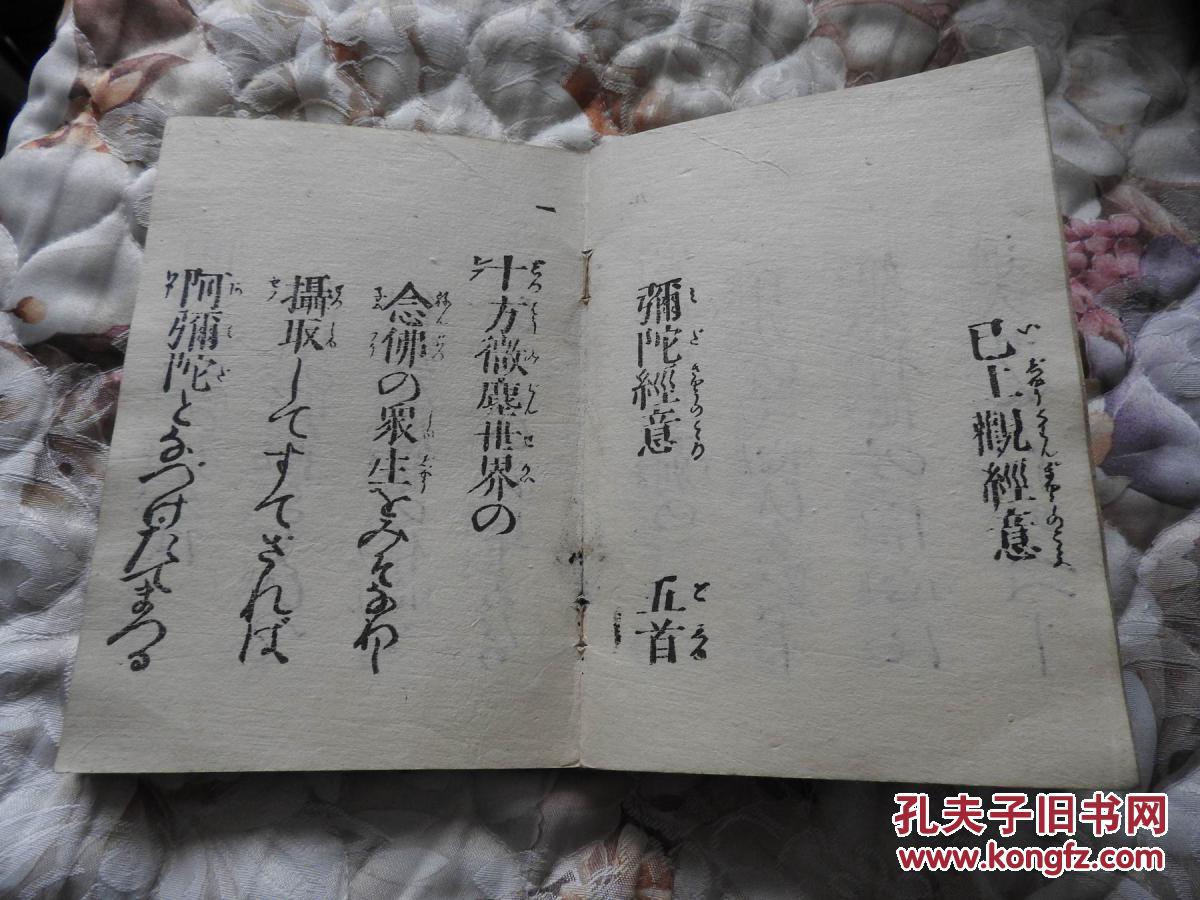 已上觀經意
彌陀經意 五首
一
十方微塵世界の
念佛の衆生をみそなわし
攝取してすてざれば
阿彌陀となづけたてまつる
孔夫子旧书网
www.kongfz.com